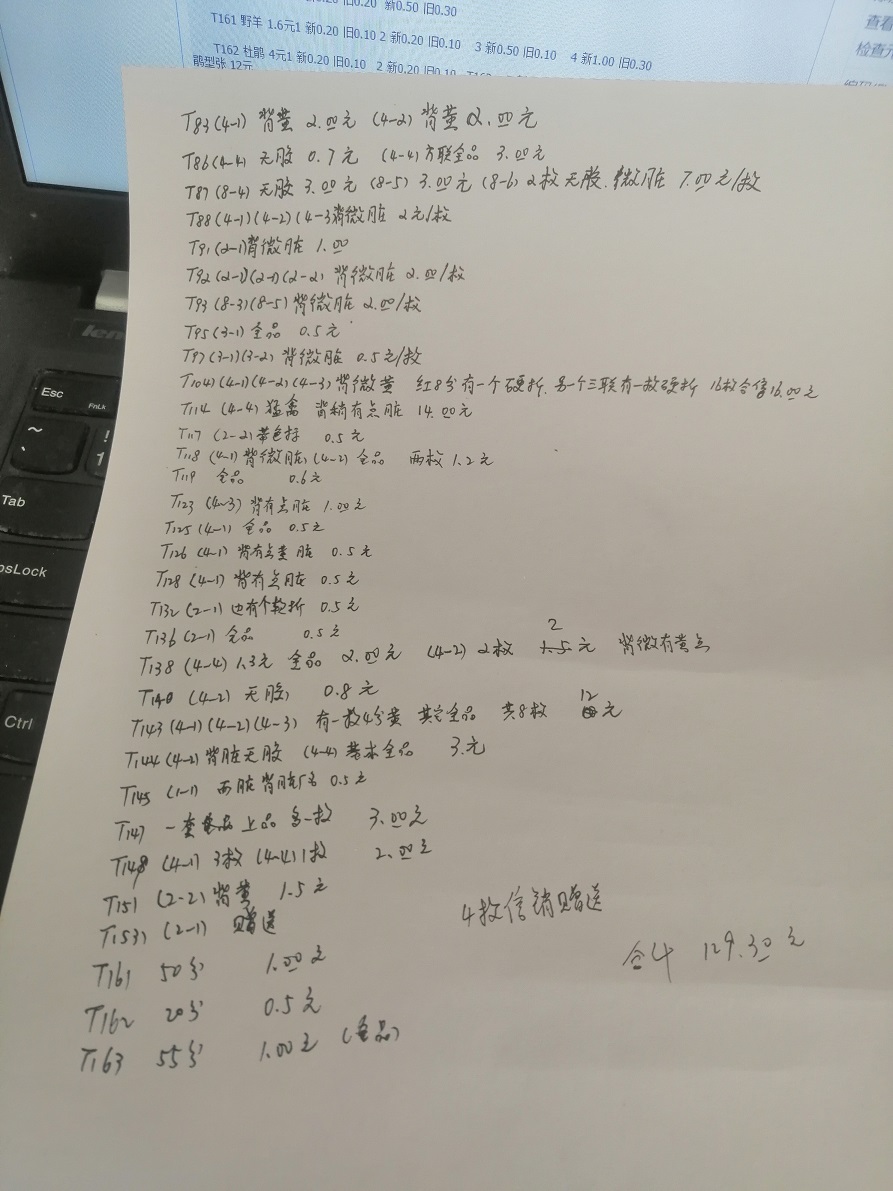 旧0.20 新0.50 旧0.30
T161 野羊 1.6元1 新0.20 旧0.10 2 新0.20 旧0.10 3 新0.50 旧0.10 4 新1.00 旧0.30
T162 杜鹃 4元1 新0.20 旧0.10 2 新0.20 旧0.10
鹃型张 12元
查看
检查
Esc
FnLk
Tab
psLock
Ctrl
T83(4-1) 背黄 2.00元 (4-2) 背黄 2.00元
T86(4-4) 无胶 0.7元 (4-4)方联全品 3.00元
T87(8-4) 无胶 3.00元 (8-5) 3.00元 (8-6) 2枚无胶.微脏 7.00元/枚
T88(4-1)(4-2)(4-3背微脏 2元/枚
T91(2-1)背微脏 1.00
T92(2-1)(2-1)(2-2) 背微脏 2.00/枚
T93(8-3)(8-5)背微脏 2.00/枚
T95(3-1)全品 0.5元
T97(3-1)(3-2) 背微脏 0.5元/枚
T104)(4-1)(4-2)(4-3)背微黄 红8分有一个硬折.另一个三联有一枚硬折 16枚合售16.00元
T114 (4-4)猛禽 背稍有点脏 14.00元
T117 (2-2)黄色标 0.5元
T118 (4-1)背微脏,(4-2)全品 两枚1.2元
T119 全品 0.6元
T123 (4-3) 背有点脏 1.00元
T125 (4-1) 全品 0.5元
T126 (4-1) 背有点黄脏 0.5元
T128 (4-1) 背有点脏 0.5元
T132 (2-1) 也有个轻折 0.5元
T136 (2-1) 全品 0.5元
T138 (4-4) 1.3元 全品 2.00元 (4-2) 2枚 2元 背微有黄点
T140 (4-2) 无胶 0.8元
T143(4-1)(4-2)(4-3) 有一枚4分黄 其它全品 共8枚 12元
T144(4-2)背脏无胶 (4-4)基本全品 3.元
T145 (1-1) 面脏背脏 0.5元
T147 一套 上品 多一枚 3.00元
T148 (4-1) 3枚 (4-4)1枚 2.00元
T151 (2-2)背黄 1.5元
T153) (2-1) 赠送
4枚信销赠送
T161 50分 1.00元
合计 129.30元
T162 20分 0.5元
T163 55分 1.00元 (全品)